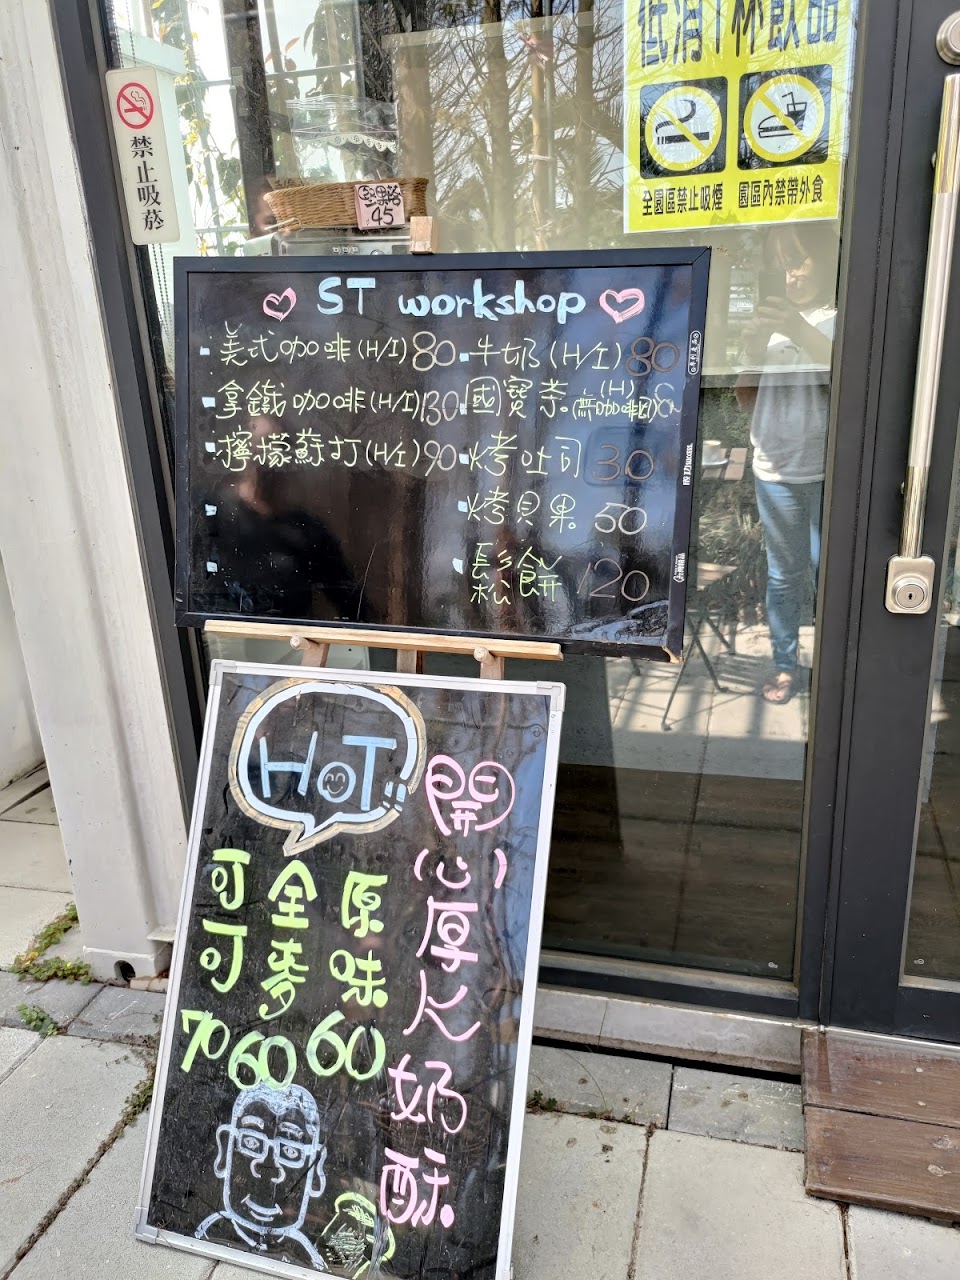 低消1杯飲品
全園區禁止吸煙
園區內禁帶外食
禁止吸菸
45
ST workshop
美式咖啡(H/I) 80
拿鐵咖啡(H/I) 130
檸檬蘇打(H/I) 90
牛奶(H/I) 80
國寶茶(H)
(無咖啡因)
烤吐司 30
烤貝果 50
鬆餅 120
HOT!!
開(心)厚片奶酥
原味 60
全麥 60
可可 70